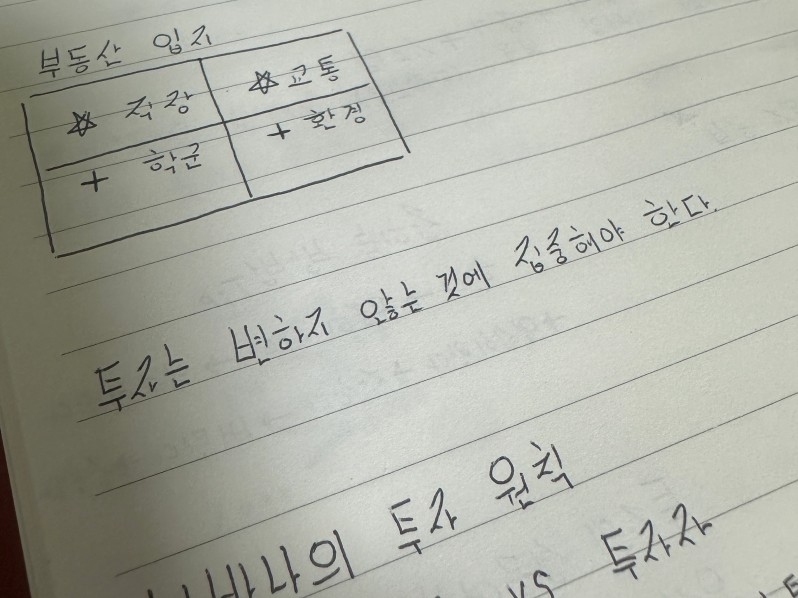 부동산 입지
☆ 직장 ☆ 교통
+ 학군 + 환경
투자는 변하지 않는 것에 집중해야 한다.
투자 원칙
vs 투자자